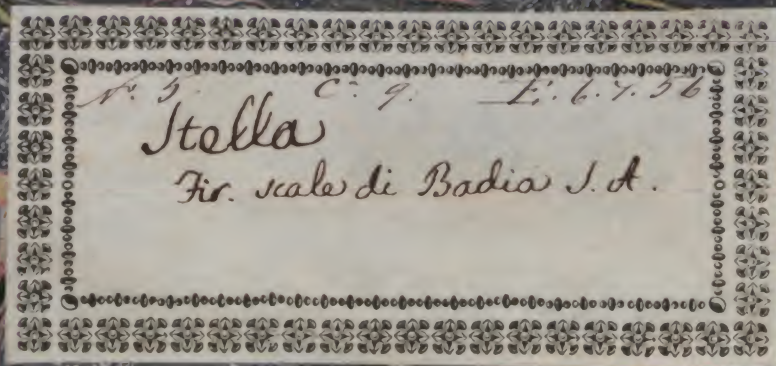 N.º 5. C.ª 9. E. 6.7.56
Stella
Fir. scale di Badia S. A.